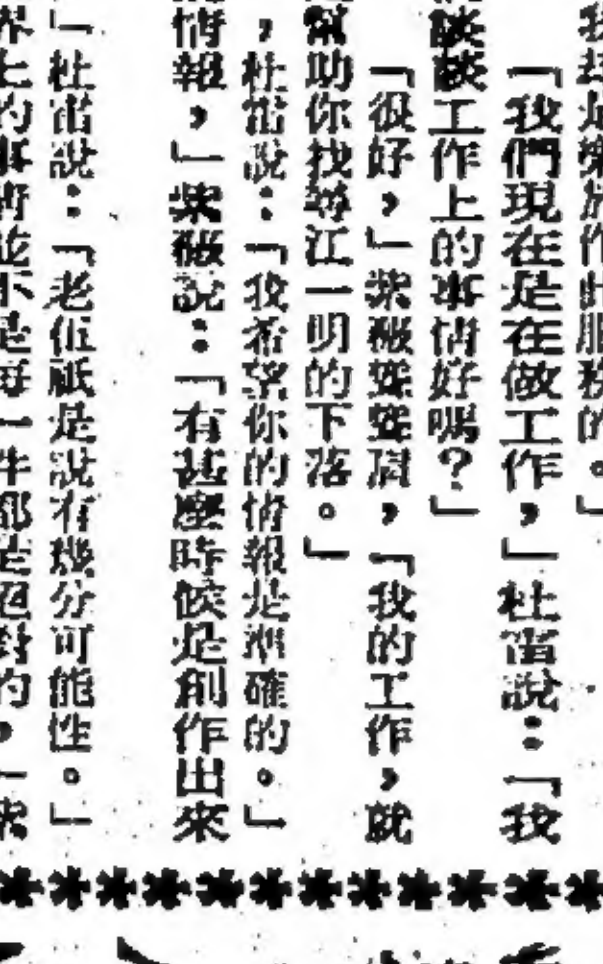 我却是樂於作此服務的。」
「我們現在是在做工作，」杜雷說：「我
談談工作上的事情好嗎？」
「很好，」紫薇聳聳肩，「我的工作，就
幫助你找尋江一明的下落。」
，杜雷說：「我希望你的情報是準確的。」
情報，」紫薇說：「有甚麼時候是創作出來
」杜雷說：「老伍祇是說有幾分可能性。」
界上的事情並不是每一件都是絕對的，」紫